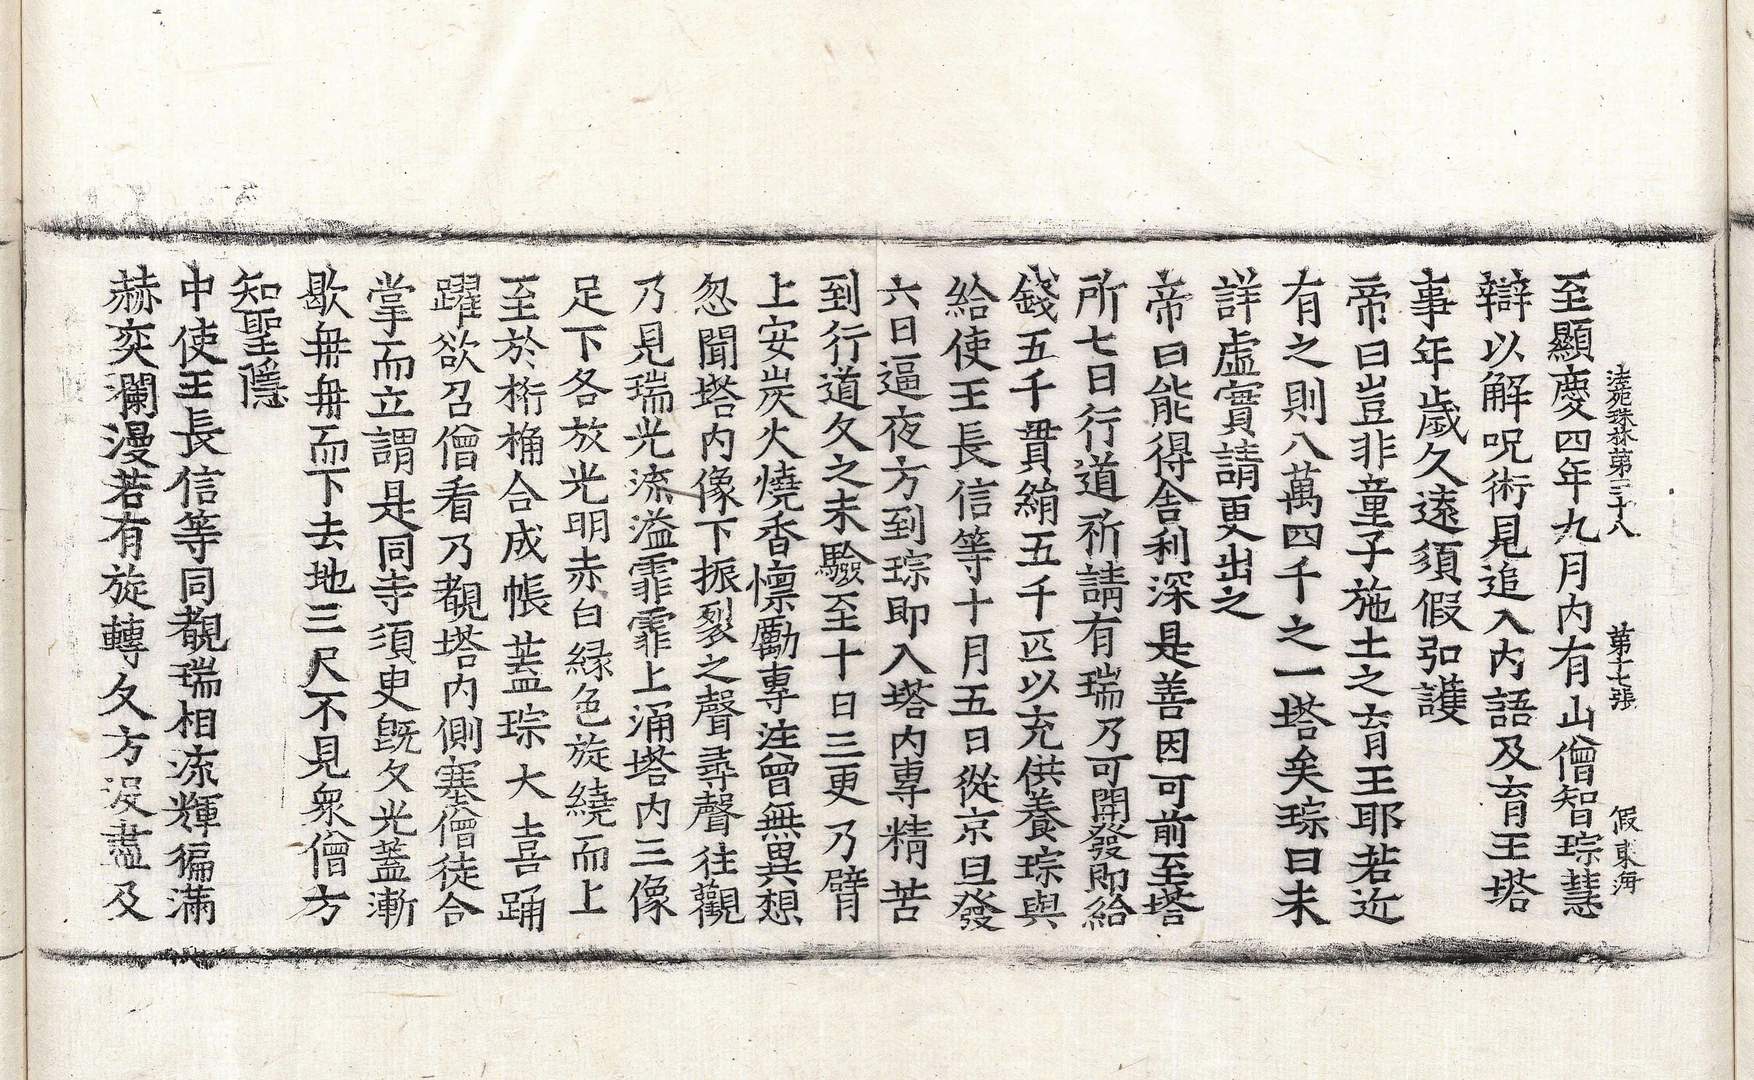 法苑珠林第三十八 第十七張 假 東海
至顯慶四年九月內有山僧智琮慧
辯以解呪術見追入內語及育王塔
事年歲久遠須假弘護
帝曰豈非童子施土之育王耶若近
有之則八萬四千之一塔矣琮曰未
詳虛實請更出之
帝曰能得舍利深是善因可前至塔
所七日行道祈請有瑞乃可開發即給
錢五千貫絹五千匹以充供養琮與
給使王長信等十月五日從京旦發
六日逼夜方到琮即入塔內專精苦
到行道久之未驗至十日三更乃臂
上安炭火燒香懍勵專注曾無異想
忽聞塔內像下振裂之聲尋聲往觀
乃見瑞光流溢霏霏上涌塔內三像
足下各放光明赤白緑色旋繞而上
至於桁桷合成帳葢琮大喜踊
躍欲召僧看乃覩塔內側塞僧徒合
掌而立謂是同寺須臾旣久光葢漸
歇冉冉而下去地三尺不見衆僧方
知聖隱
中使王長信等同覩瑞相流輝徧滿
赫奕瀾漫若有旋轉久方沒盡及